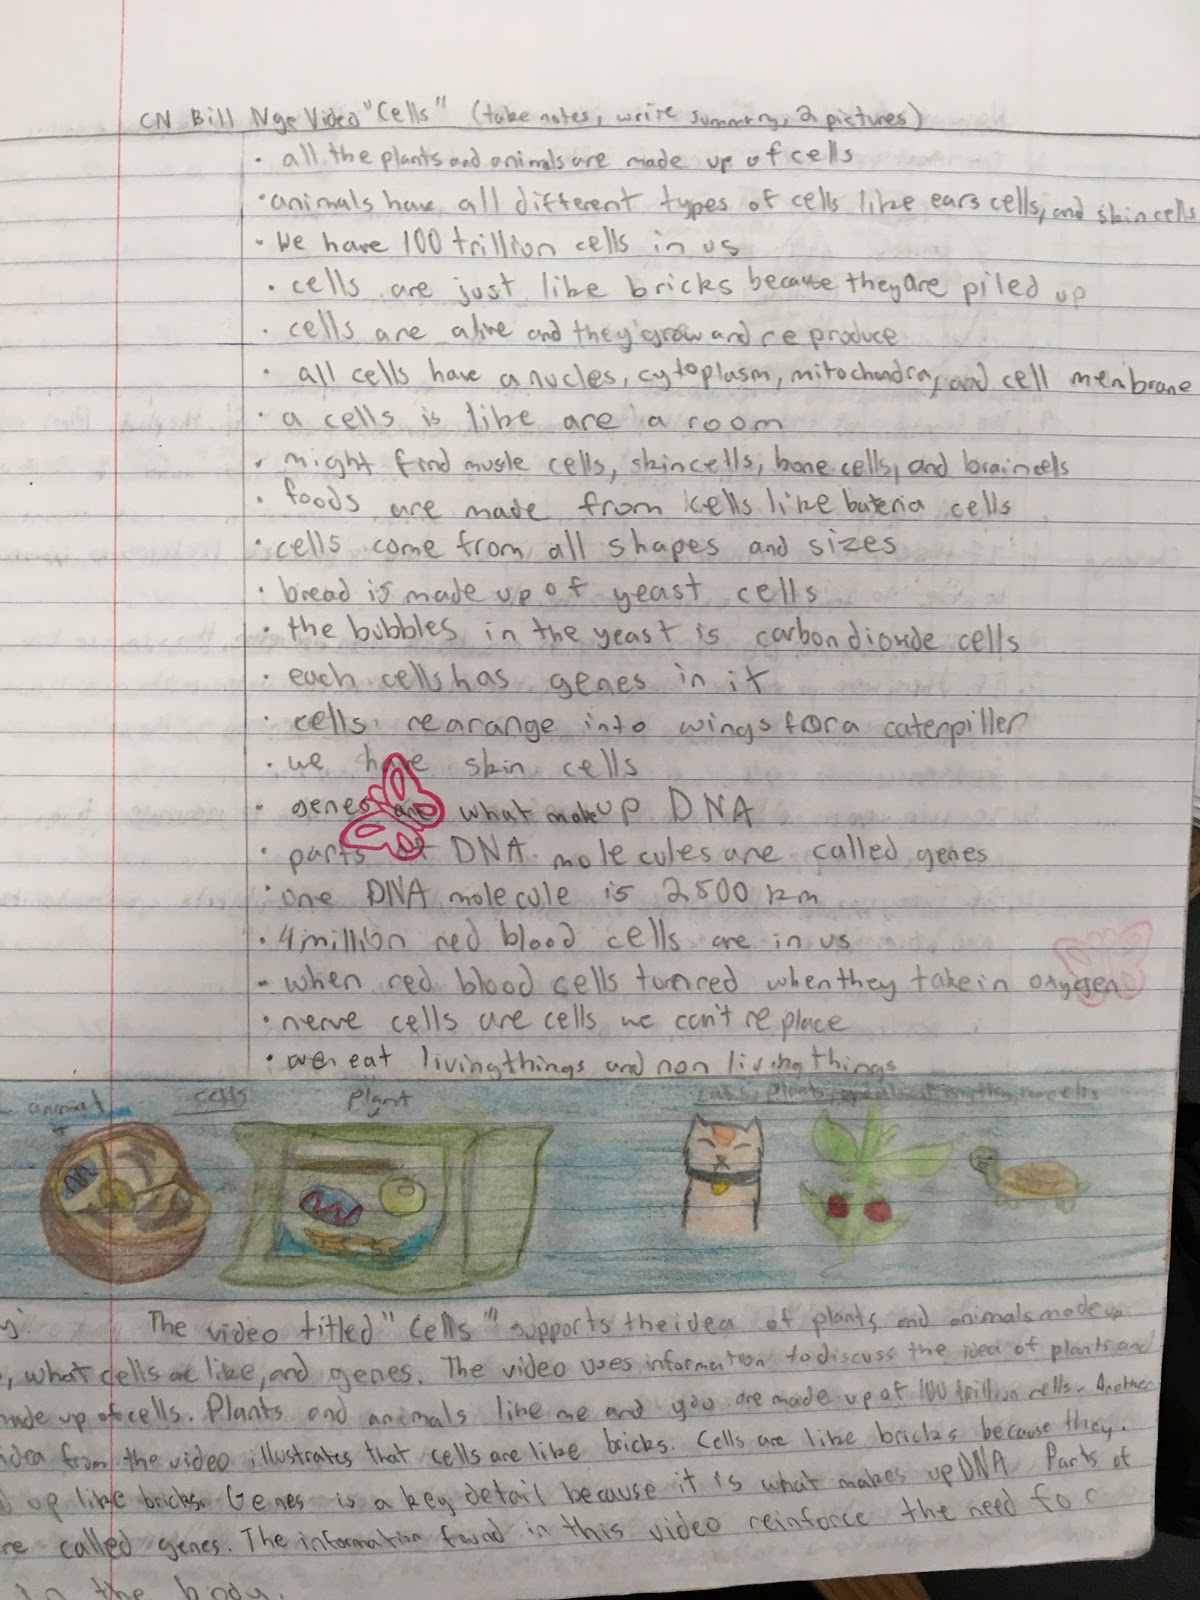 CN Bill Nge Video "Cells" (take notes, write summary, 2 pictures)
· all the plants and animals are made up of cells
· animals have all different types of cells like ears cells, and skin cells
· We have 100 trillion cells in us
· cells are just like bricks because they are piled up
· cells are alive and they grow and re produce
· all cells have a nucles, cytoplasm, mitochondra, and cell menbrane
· a cells is like are a room
· might find musle cells, skin cells, bone cells, and brain cels
· foods are made from cells like bateria cells
· cells come from all shapes and sizes
· bread is made up of yeast cells
· the bubbles in the yeast is carbon dioxide cells
· each cells has genes in it
· cells rearange into wings for a caterpiller
· we have skin cells
· genes are what make up DNA
· parts of DNA molecules are called genes
· one DNA molecule is 2500 km
· 4 million red blood cells are in us
· when red blood cells turn red when they take in oxygen
· nerve cells are cells we can't re place
· eat living things and non living things
animal cells plant
The video titled "Cells" supports the idea of plants and animals made up
, what cells are like, and genes. The video uses information to discuss the idea of plants and
made up of cells. Plants and animals like me and you are made up of 100 trillion cells. Another
idea from the video illustrates that cells are like bricks. Cells are like bricks because they.
up like bricks. Genes is a key detail because it is what makes up DNA Parts of
re called genes. The information found in this video reinforce the need fo
in the body.